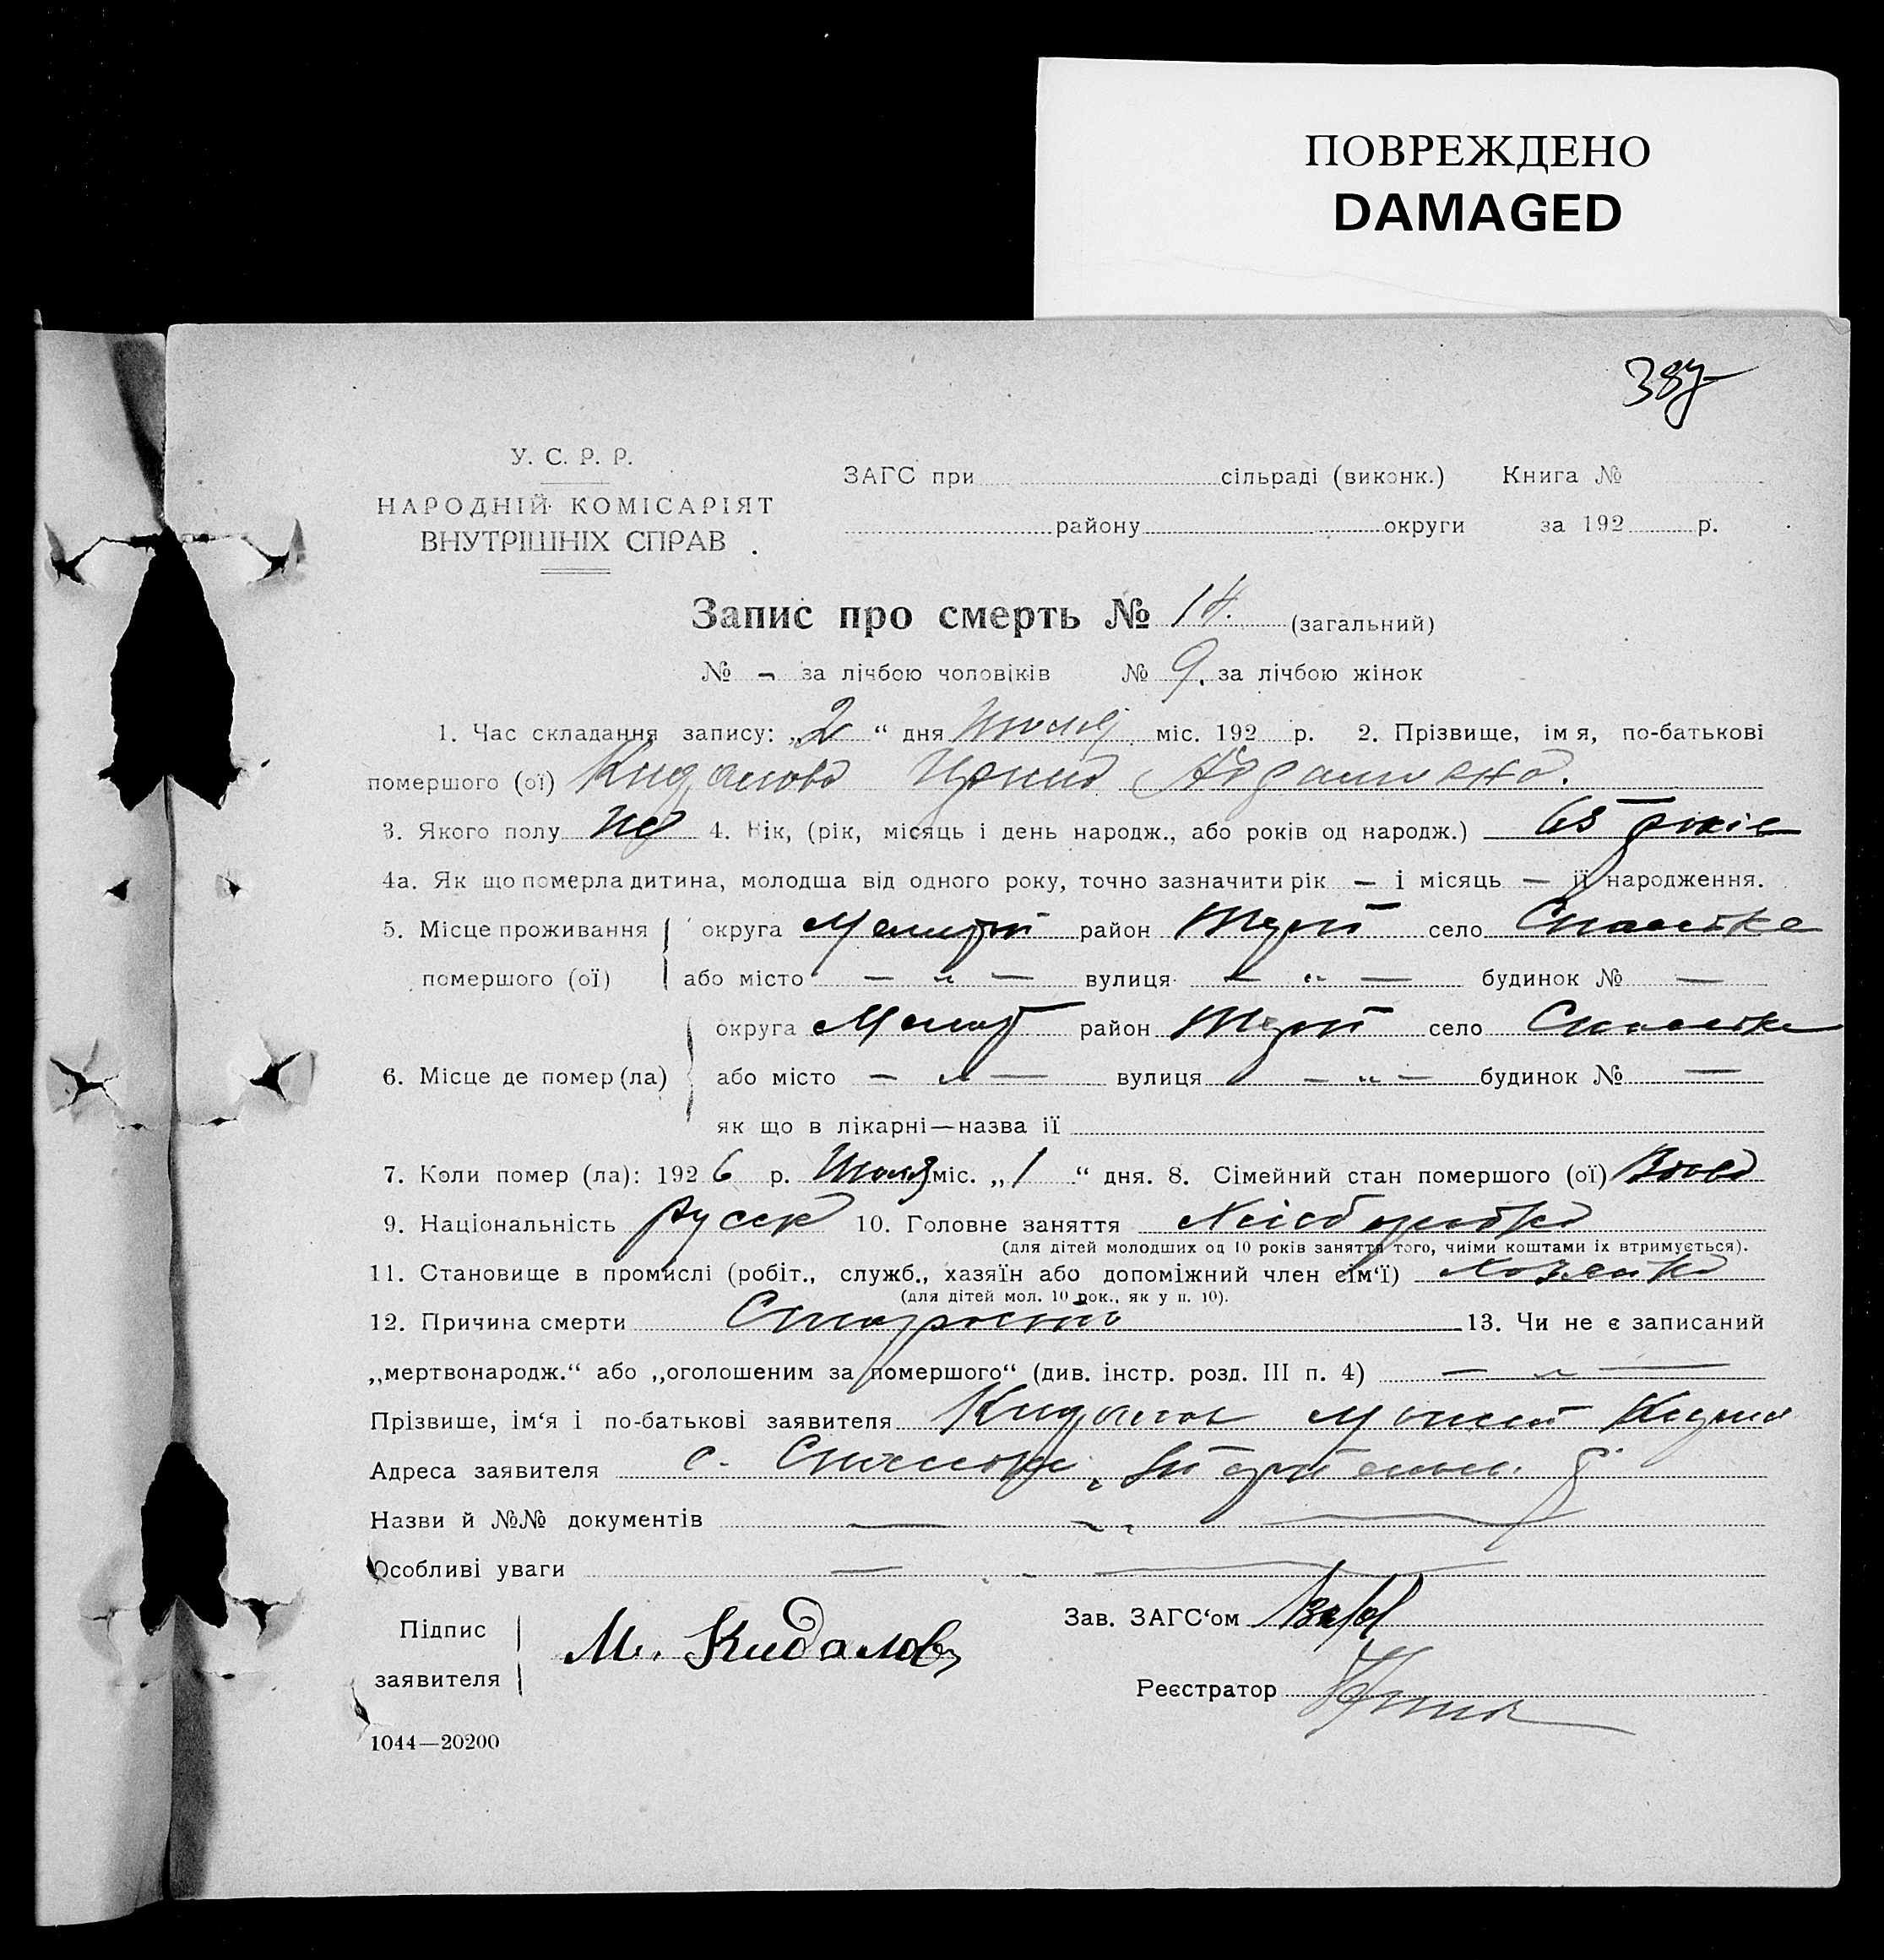 ПОВРЕЖДЕНО
DAMAGED
387
У. С. Р. Р.
НАРОДНІЙ КОМІСАРІЯТ
ВНУТРІШНІХ СПРАВ
ЗАГС при сільраді (виконк.) Книга №
району округи за 192 р.
Запис про смерть № 14. (загальний)
№ - за лічбою чоловіків № 9. за лічбою жінок
1. Час складання запису: „2“ дня міс. 192 р. 2. Прізвище, ім я, по-батькові
помершого (ої) Кидалова
3. Якого полу 4. Вік, (рік, місяць і день народж., або років од народж.) 65 років
4а. Як що померла дитина, молодша від одного року, точно зазначити рік — і місяць — її народження.
5. Місце проживання округа район село
помершого (ої) або місто — „ — вулиця — „ — будинок № —
округа район село
6. Місце де помер (ла) або місто — „ — вулиця — „ — будинок № —
як що в лікарні—назва її
7. Коли помер (ла): 1926 р. Июля міс. „1“ дня. 8. Сімейний стан помершого (ої) Вдова
9. Національність русск 10. Головне заняття Хліборобка
(для дітей молодших од 10 років заняття того, чиїми коштами їх втримується).
11. Становище в промислі (робіт., служб., хазяїн або допоміжний член сім‘ї) хозяйка
(для дітей мол. 10 рок., як у п. 10).
12. Причина смерти Старость 13. Чи не є записаний
„мертвонародж.“ або „оголошеним за помершого“ (див. інстр. розд. III п. 4) — „ —
Прізвише, ім‘я і по-батькові заявителя Кидалов
Адреса заявителя с.
Назви й №№ документів — „ —
Особливі уваги — „ —
Підпис
заявителя М. Кидаловъ
Зав. ЗАГС‘ом
Реєстратор
1044—20200